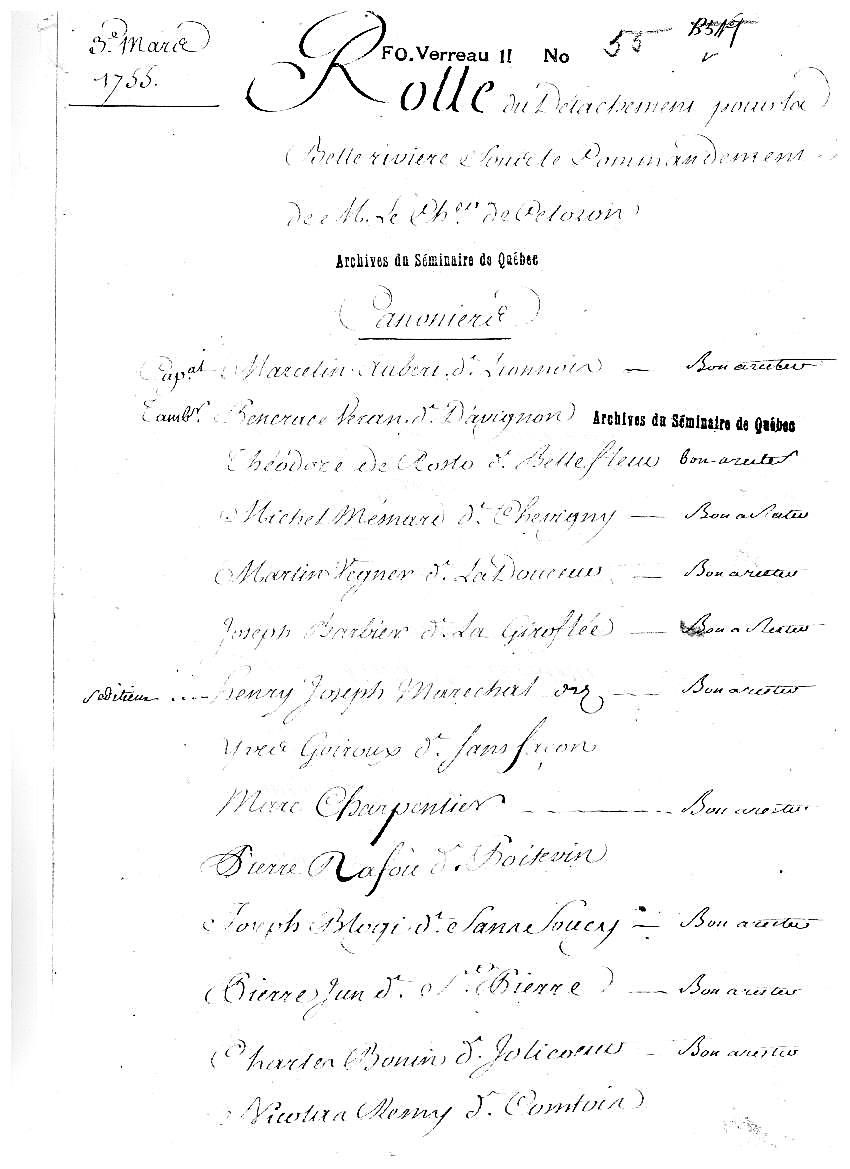 3e. Mars
1755.
FO. Verreau II No 55
Rolle du Détachement pour la
Belle riviere Sous le Commandement
de M. Le Cher. de Celoron
Archives du Séminaire de Québec
Canoniers
Capal. Marcelin Aubert dt. Lionnois — Bon a rester
Tambr. Veran dt. D'avignon Archives du Séminaire de Québec
Théodore de Rosto dt. Bellefleur bon a rester
Michel Mémard dt. Chevigny — Bon a Rester
Martin Vegner dt. La Douceur — Bon a rester
Joseph Barbier dt. La Giroflée — Bon a Rester
Séditieux ... henry Joseph Marechal — Bon a rester
Yves Goiroux dt. Sans façon
Marc Charpentier — Bon a rester
Pierre Rafoü dt. Poitevin
Joseph Blogi dt. Sanssoucy — Bon a rester
Pierre Jun dt. St. Pierre — Bon a rester
Charles Bonin dt. Jolicoeur — Bon a rester
Nicolas Remy dt. Comtois